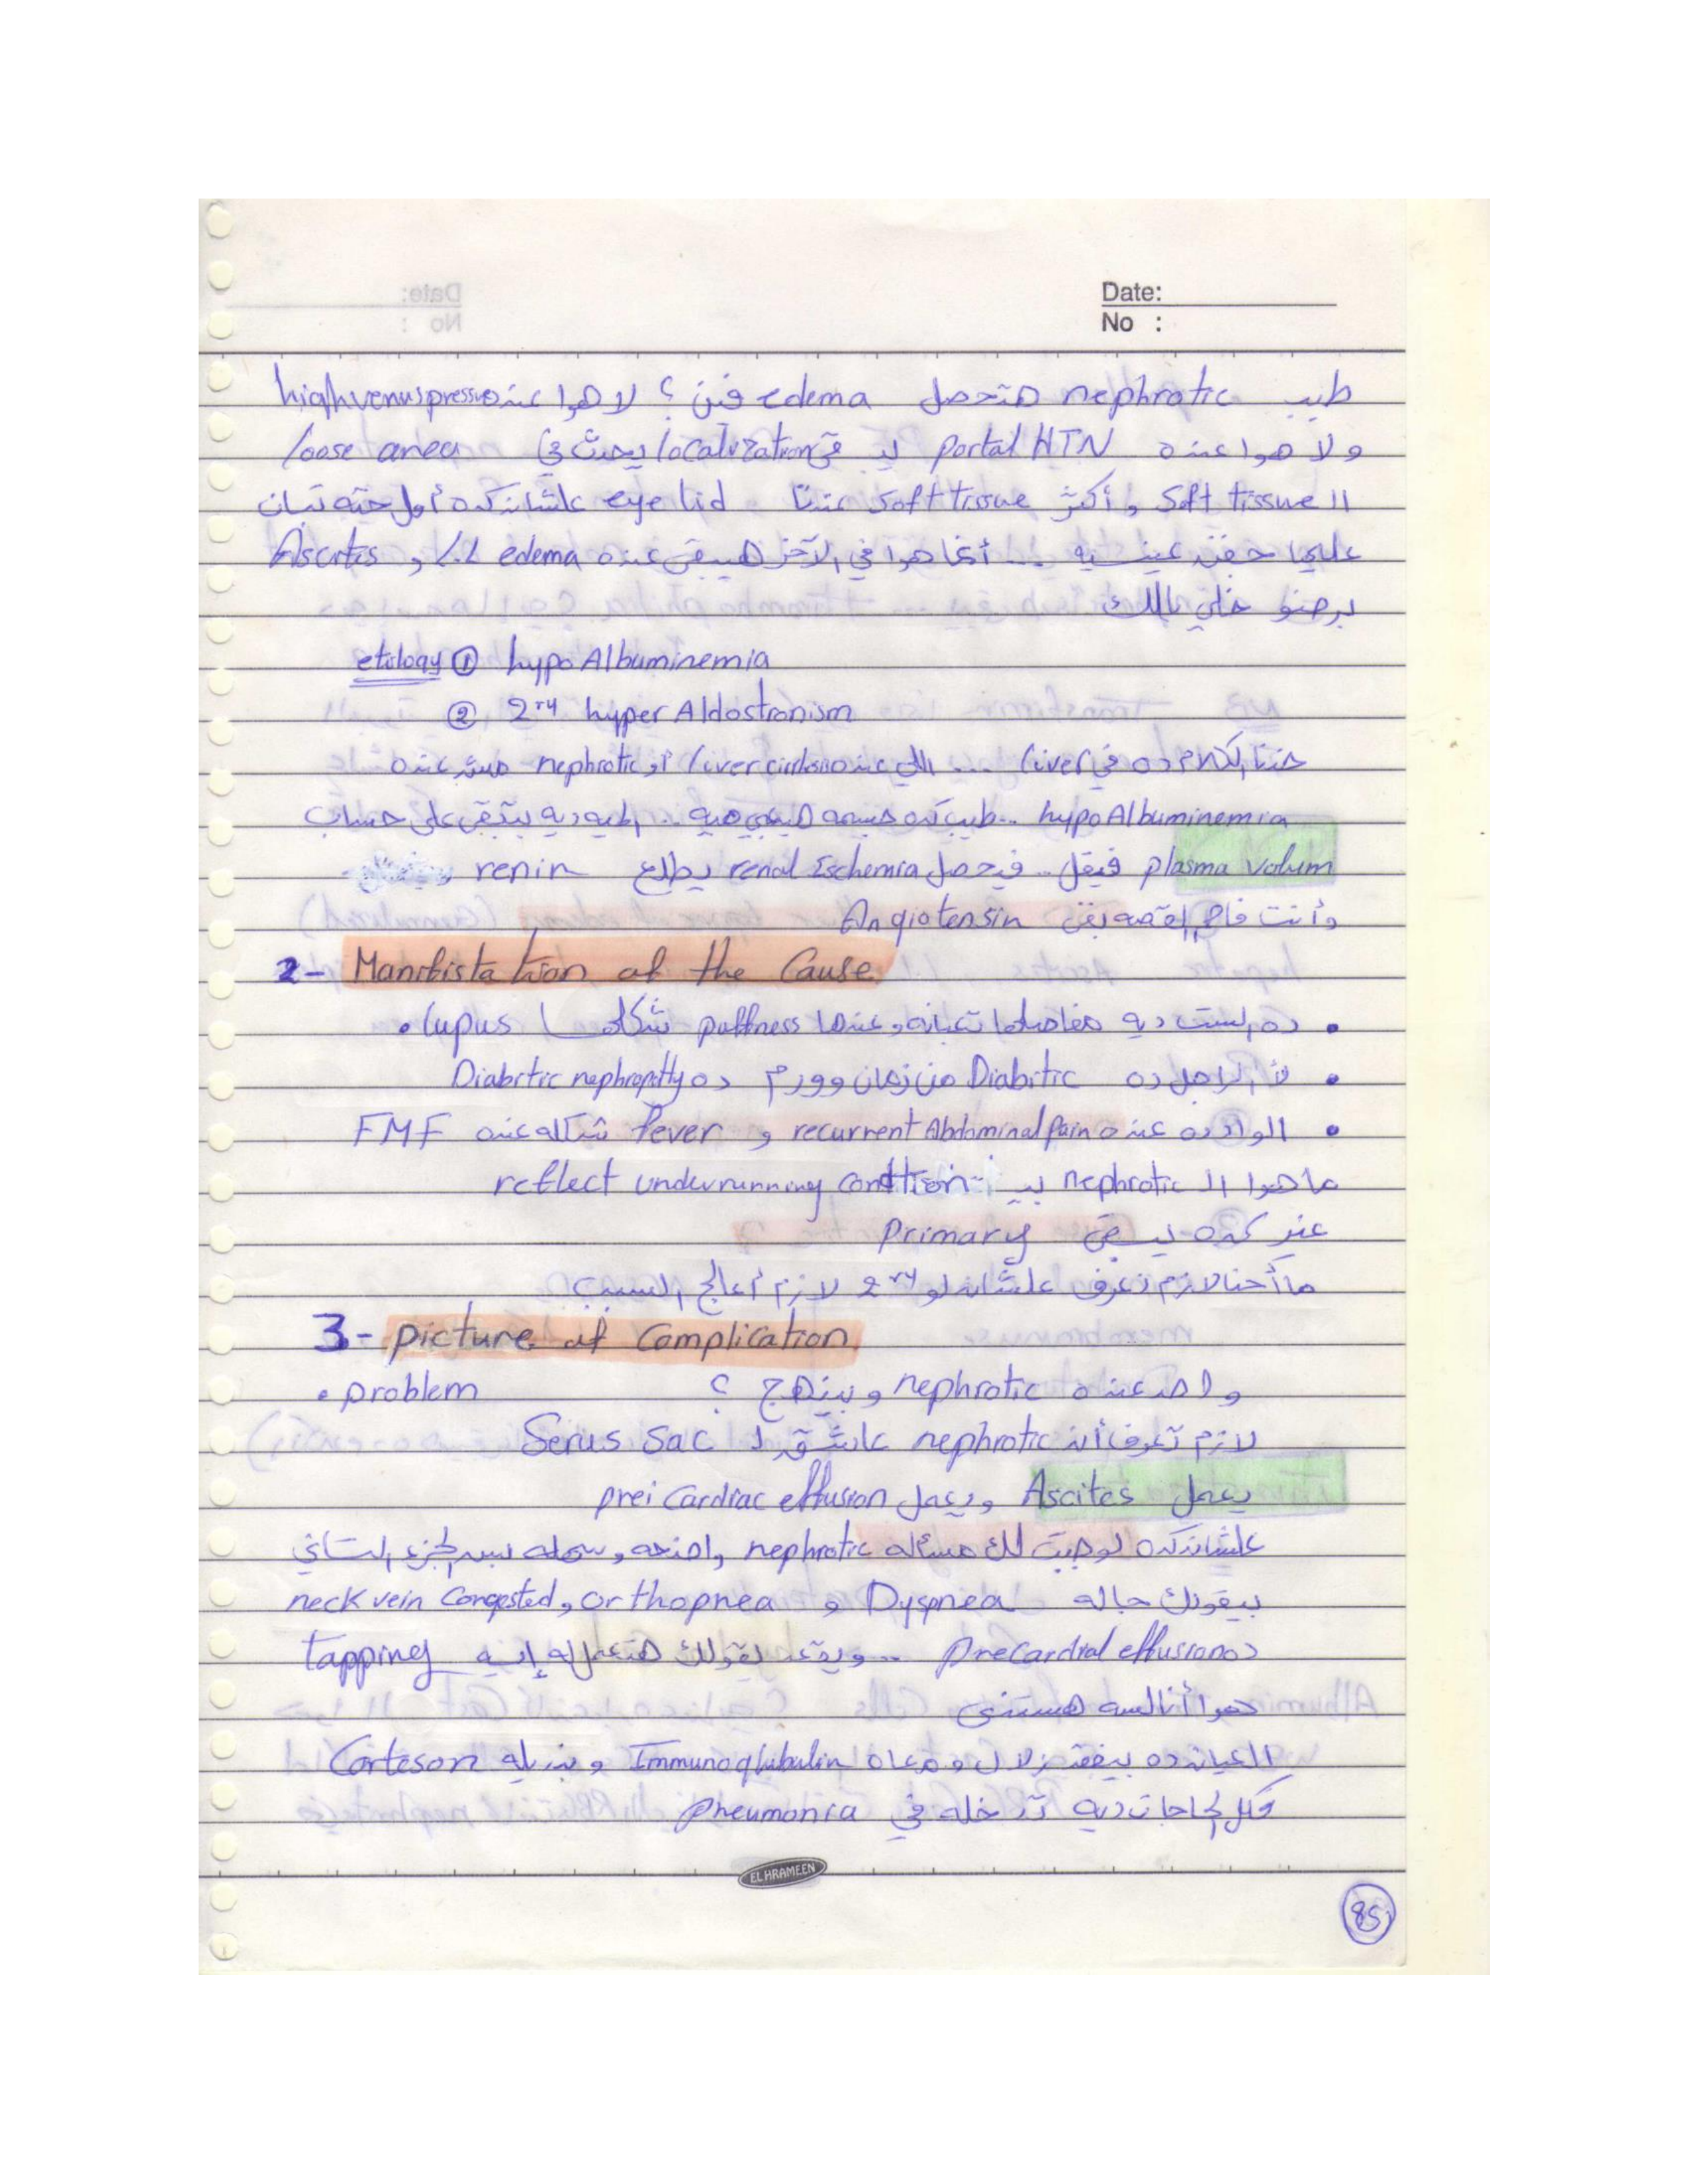 Date:
No :
طيب nephrotic هتحصل edema فين ؟ لا هوا عنده high venus pressure
ولا هوا عنده portal HTN يبقى localization يحدث في loose area
ال soft tissue و أكتر soft tissue عندنا eye lid علشان كده أول حته تبان
عليها جفن عينيه ... أنما هوا في الآخر هيبقى عنده L.L edema و Ascites
برضو خلي بالك
etiology ① hypo Albuminemia
② 2ry hyper Aldostronism
خدنا الكلام ده في liver ... اللي عنده liver cirrhosis أو nephrotic مش عنده
hypo Albuminemia .. طيب ده جسمه هيبقى فيه .. المايه ديه بتبقى على حساب
plasma volum فيقل .. فيحصل renal Ischemia يطلع renin
وأنت فاهم القصه بقى Angiotensin
2- Manifistation of the Cause
• ده الست ديه مفاصلها تعبانه وعندها puffness شكلها lupus •
• لأ الراجل ده Diabetic من زمان وورم ده Diabetic nephropathy
• الواد ده عنده recurrent Abdominal Pain و fever شكله عنده FMF
ما هوا ال nephrotic بيـ reflect underrunning condition
غير كده يبقى primary
ما أحنا لازم نعرف علشان لو 2ry لازم أعالج السبب
3- picture of Complication
واحد عنده nephrotic وبينهج ؟ • problem
لازم تعرف أن nephrotic عاشق ل Serus Sac
يعمل Ascites ويعمل prei Cardiac effusion
علشان كده لو جبت لك مسأله nephrotic واضحه وسهله بس الجزء التاني
بيقولك جاله Dyspnea و orthopnea و neck vein Congested
ده preCardial effusion ... ويقعد يقولك هتعمل له إيه tapping
هوا أنا لسه هستنى
العيان ده بيفقد زلال و معاه Immunoglubulin و بنديله Corteson
وكل الحاجات ديه تدخله في pneumonia
EL HRAMEEN
85